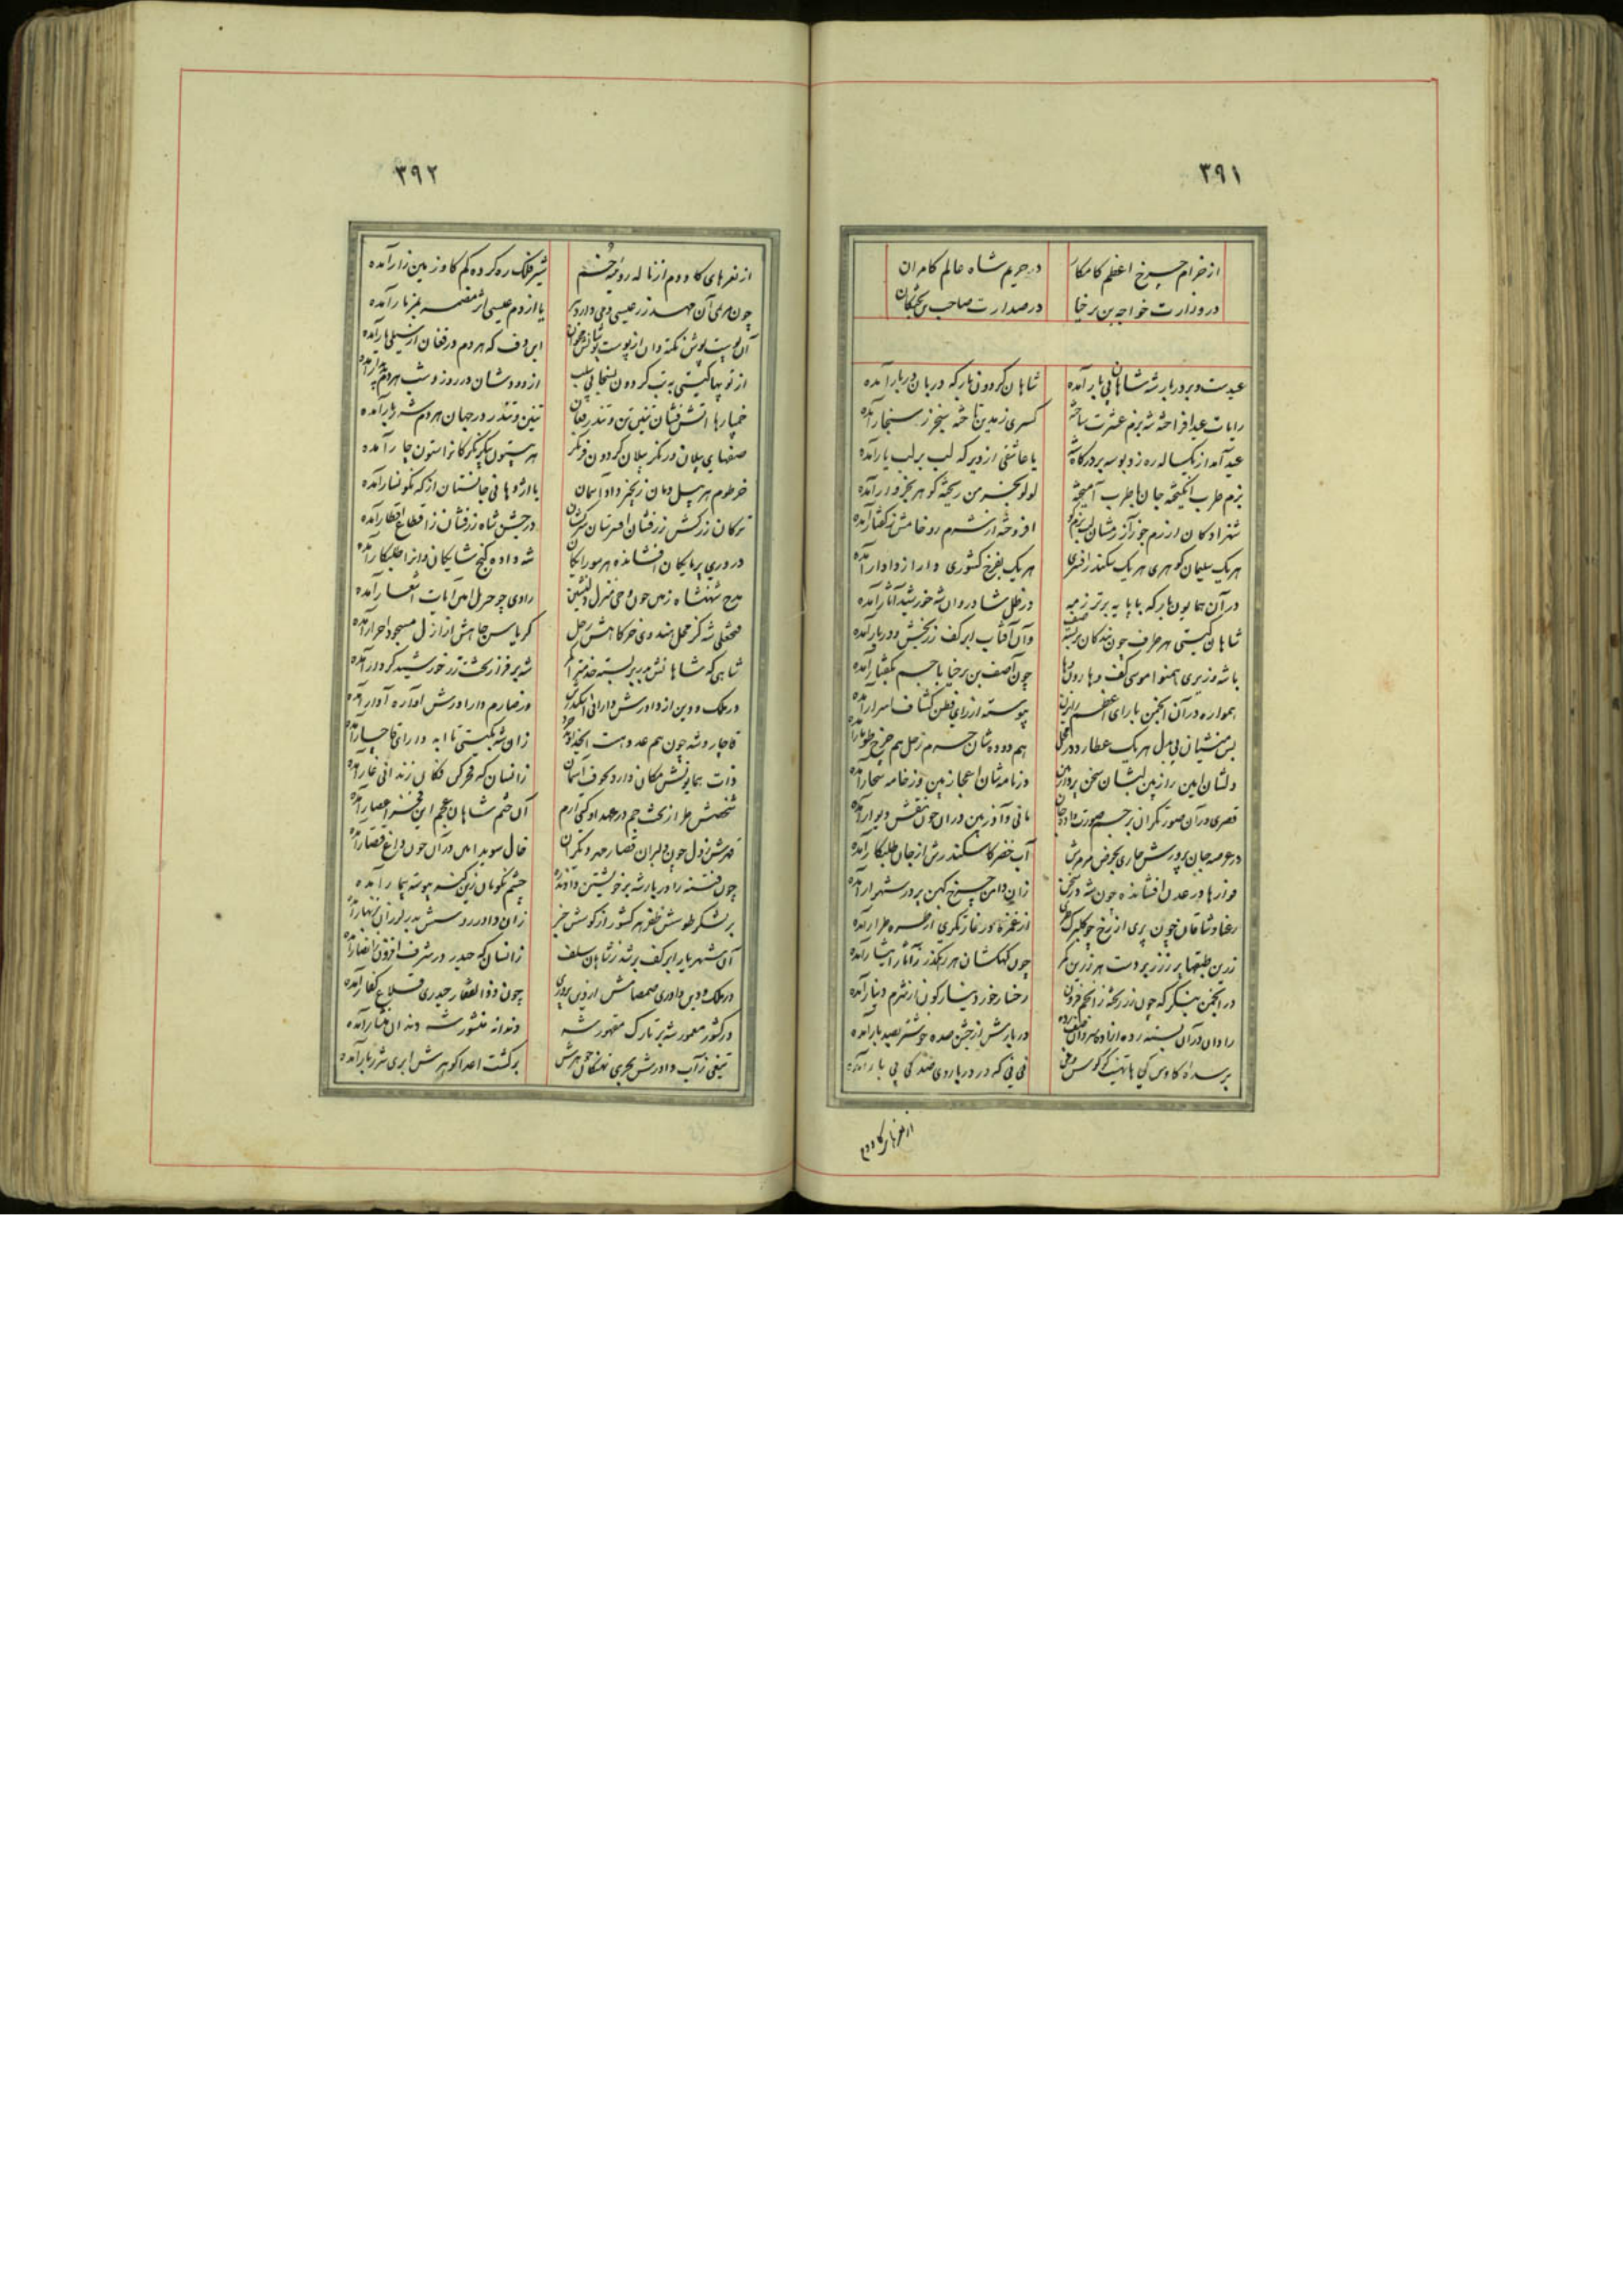 ۳۹۱
از خرام چرخ اعظم کامکار در حریم شاه عالم کامران
در وزارت خواجه بن برخیا در صدارت صاحب
عیدست و بر دربار شه شاهان پی بار آمده شاهان گردون بارگه دربان دربار آمده
رایات عید افراخته شه بزم عشرت ساخته کسری زمین تاخته سنجر ز سنجار آمده
عید آمد از یکساله ره زد بوسه بر درگاه شه یا عاشقی از دیر گه لب بر لب یار آمده
بزم طرب انگیخته جان با طرب آمیخته لولو بخرمن ریخته گوهر بخروار آمده
شهزادگان از رزم جو افروخته از شرم رو خامش ز گفتار آمده
هر یک سلیمان گوهری هر یک سکندر افسری هر یک بفرخ کشوری دارا ز دادار آمده
در آن همایون بارگه با پایه برتر ز مه در ظل شادروان شه خورشید آثار آمده
شاهان گیتی هر طرف چون بندگان بربسته صف وان آفتاب ابر کف زربخش و دربار آمده
با شه وزیری همنوا موسی کف و هارون چون آصف بن برخیا با جم بگفتار آمده
همواره در آن انجمن با رای اعظم پیوسته از رای فطن کشاف اسرار آمده
بس منشیان بی بدل هر یک عطارد در هم دوده شان جرم زحل هم چرخ طومار آمده
دلشان امین راز بین لبشان سخن پرداز بین در نامه شان اعجاز بین وز خامه سحار آمده
قصری در آن صورتگران بر جسم صورت داده جان مانی و آذر بین در آن چون نقش دیوار آمده
در عرصه جان پرورش جاری بحوض مرمرش آب خضر کاسکندرش از جان طلبکار آمده
فواره‌ها در عدن افشانده چون شه در سخن زان دامن چرخ کهن پر در شهوار آمده
رعنا وشاقان چون پری از رخ چو گلبرگ طری از غمزه در غارتگری از طره طرار آمده
زرین طبقها پر ز زر بر دست هر زرین کمر چون کهکشان هر رهگذر ز آثار ایثار آمده
در انجمن بنگر که چون زر ریخته ز انجم فزون رخسار خور دینار گون از شرم دینار آمده
رادان در آن بسته رده در بارش از جشن سده خوشتر بصد بار آمده
بر سده کاوس کی با تهنیت گر کوس نی نی نی که در دربار وی صد کی پی بار آمده
از نعرهای گاودم
۳۹۲
از نعرهای گاودم از ناله رویینه خم شیر فلک ره کرده گم گاو زمین زار آمده
چون مریم آن مهد زر عیسی دمی دارد ببر یا از دم عیسی اثر مضمر بمزمار آمده
آن پوست پوش نکته دان از پوست پوشانش این دف که هر دم در فغان از سیلی یار آمده
از توپها گیتی به تب گردون از دودشان در روز و شب هر دم پدیدار آمده
خمپارها آتش فشان تنین تن و تندر فغان تنین و تندر در جهان هر دم شرر بار آمده
صفهای پیلان در نگر پیلان گردون فر نگر هر بیستون پیکر نگر کانرا ستون چار آمده
خرطوم هر پیل دمان زنجیر داد آسمان یا اژدهائی جانستان از که نگونسار آمده
ترکان زرکش زرفشان افسرتان سرکشان در جشن شاه زرفشان ز اقطاع اقطار آمده
در دری پر مایگان افشانده هر سو رایگان شه داده گنج شایگانی وانرا طلبکار آمده
مدح شهنشاه زمن چون وحی منزل دلنشین راوی چو جبریل امین آیات اشعار آمده
فتحعلی شه کز محل هندوی خرگاهش زحل کریاس جاهش از ازل مسجود احرار آمده
شاهی که شاهانش ببر بر بسته خدمتر را کمر شه بر فراز تخت زر خورشید کردار آمده
در ملک و دین از داورش دارائی اسکندری وز صارم داراورش آواره ادوار آمده
قاجار و شه چون هم عدد هست ز ان شه بگیتی تا ابد دارای قاجار آمده
ذات همایونش مکان دارد بکوف آسمان زانسان که فخر کن فکان زندانی غار آمده
شخصش طراز تخت جم در عهد او گیتی ارم آن ختم شاهان عجم این فخر اعصار آمده
مهرش ز دل چون دلبران قصار مهر دیگران خال سویدا بین در آن چون داغ قصار آمده
چون فتنه را دربار شه بر خویشتن دادند ره چشم نکویان زین گنه پیوسته بیمار آمده
بر لشکر طوسش ظفر هر کشور از کوسش خبر زان داور روسش بدر لرزان بزنهار آمده
آن شهریار ابر کف برتر ز شاهان سلف زانسان که حیدر در شرف افزون ز انصار آمده
در ملک و دین داوری صمصامش از دین پروری چون ذوالفقار حیدری قلاع کفار آمده
در کشور معمور شه بر تارک مقهور شه دندانه منشور شه دندان منشار آمده
تیغی ز آب داورش بحری نهنگان جوهرش بر کشت اعدا گوهرش ابری شرر بار آمده